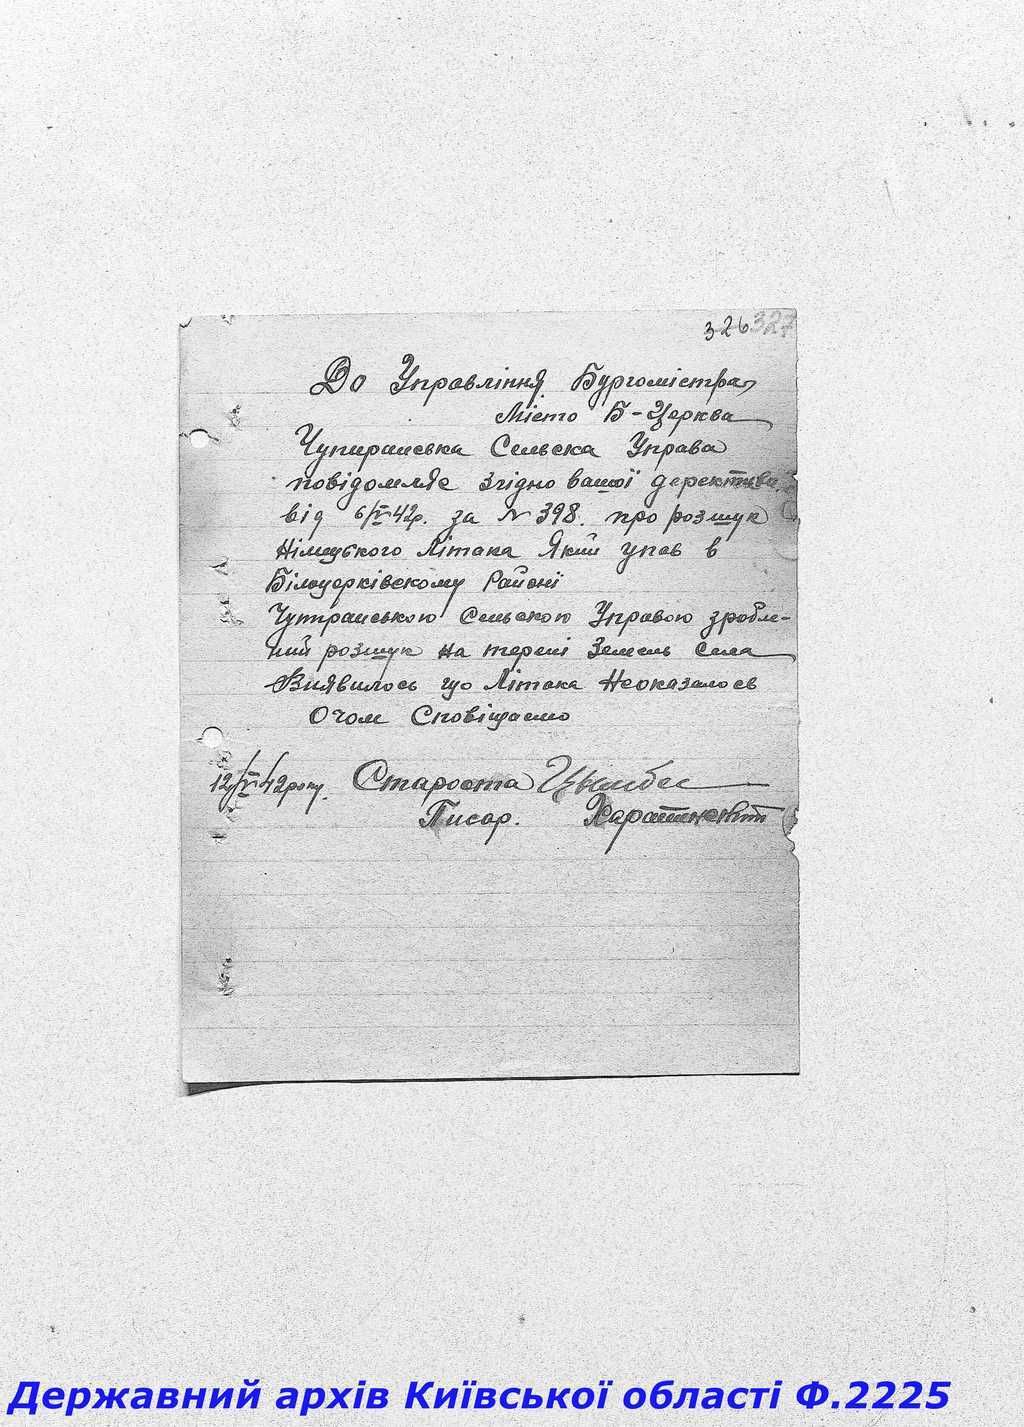 326 327
До Управління Бургомістра
Місто Б-Церква
Чупиранська Сельська Управа
повідомляє згідно вашої деректива
від 6/VI 42р. за № 398. про розшук
Німецького Літака Який упав в
Білоцерківському Районі
Сельською Управою зробле-
ний розшук на терені Земель Села
Виявилось що Літака Неоказалось
Очом Сповіщаємо
12/VI 42 року. Староста
Писар.
Державний архів Київської області Ф.2225